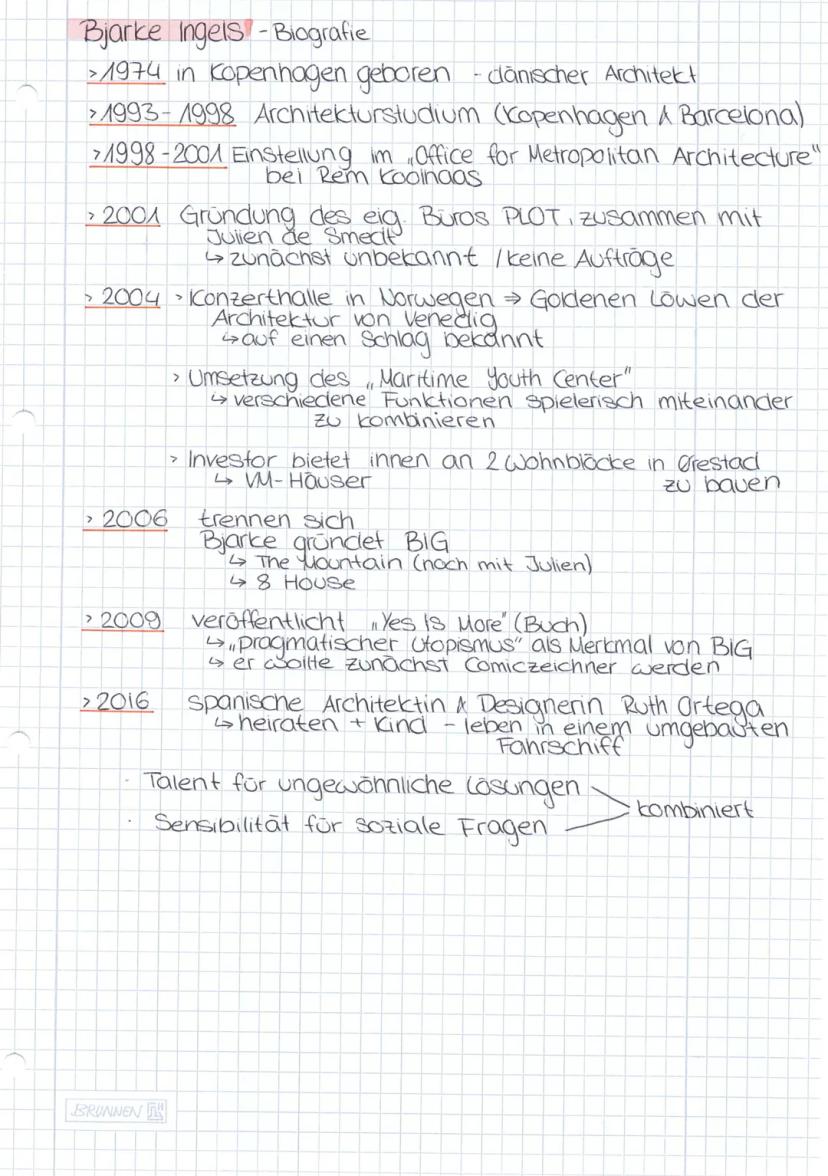 Bjarke Ingels - Biografie
> 1974 in Kopenhagen geboren - dänischer Architekt
> 1993 - 1998 Architekturstudium (Kopenhagen & Barcelona)
> 1998 - 2001 Einstellung im „Office for Metropolitan Architecture"
bei Rem Koolhaas
> 2001 Gründung des eig. Büros PLOT, zusammen mit
Julien de Smedt
↳ zunächst unbekannt / keine Aufträge
> 2004 > Konzerthalle in Norwegen ⇒ Goldenen Löwen der
Architektur von Venedig
↳ auf einen Schlag bekannt
> Umsetzung des „Maritime Youth Center"
↳ verschiedene Funktionen spielerisch miteinander
zu kombinieren
> Investor bietet ihnen an 2 Wohnblöcke in Ørestad
↳ VM-Häuser zu bauen
> 2006 trennen sich
Bjarke gründet BIG
↳ The Mountain (noch mit Julien)
↳ 8 House
> 2009 veröffentlicht „Yes Is More" (Buch)
↳ „pragmatischer Utopismus" als Merkmal von BIG
↳ er wollte zunächst Comiczeichner werden
> 2016 spanische Architektin & Designerin Ruth Ortega
↳ heiraten + Kind - leben in einem umgebauten
Fährschiff
· Talent für ungewöhnliche Lösungen
kombiniert
· Sensibilität für soziale Fragen
BRUNNEN